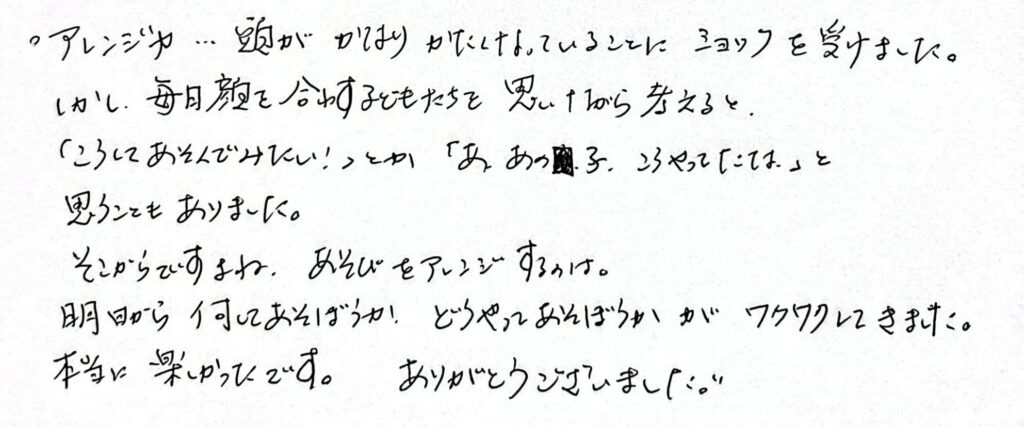 。アレンジ力… 頭が かなり かたくなっていることに ショックを受けました。
しかし、毎日顔を合わす子どもたちを 思いながら 考えると、
「こうしてあそんでみたい!」とか 「あ、あの子、こうやってたなぁ。」と
思うこともありました。
そこからですよね、あそびをアレンジするのは。
明日から 何してあそぼうか、どうやってあそぼうか が ワクワクしてきました。
本当に 楽しかったです。 ありがとうございました。